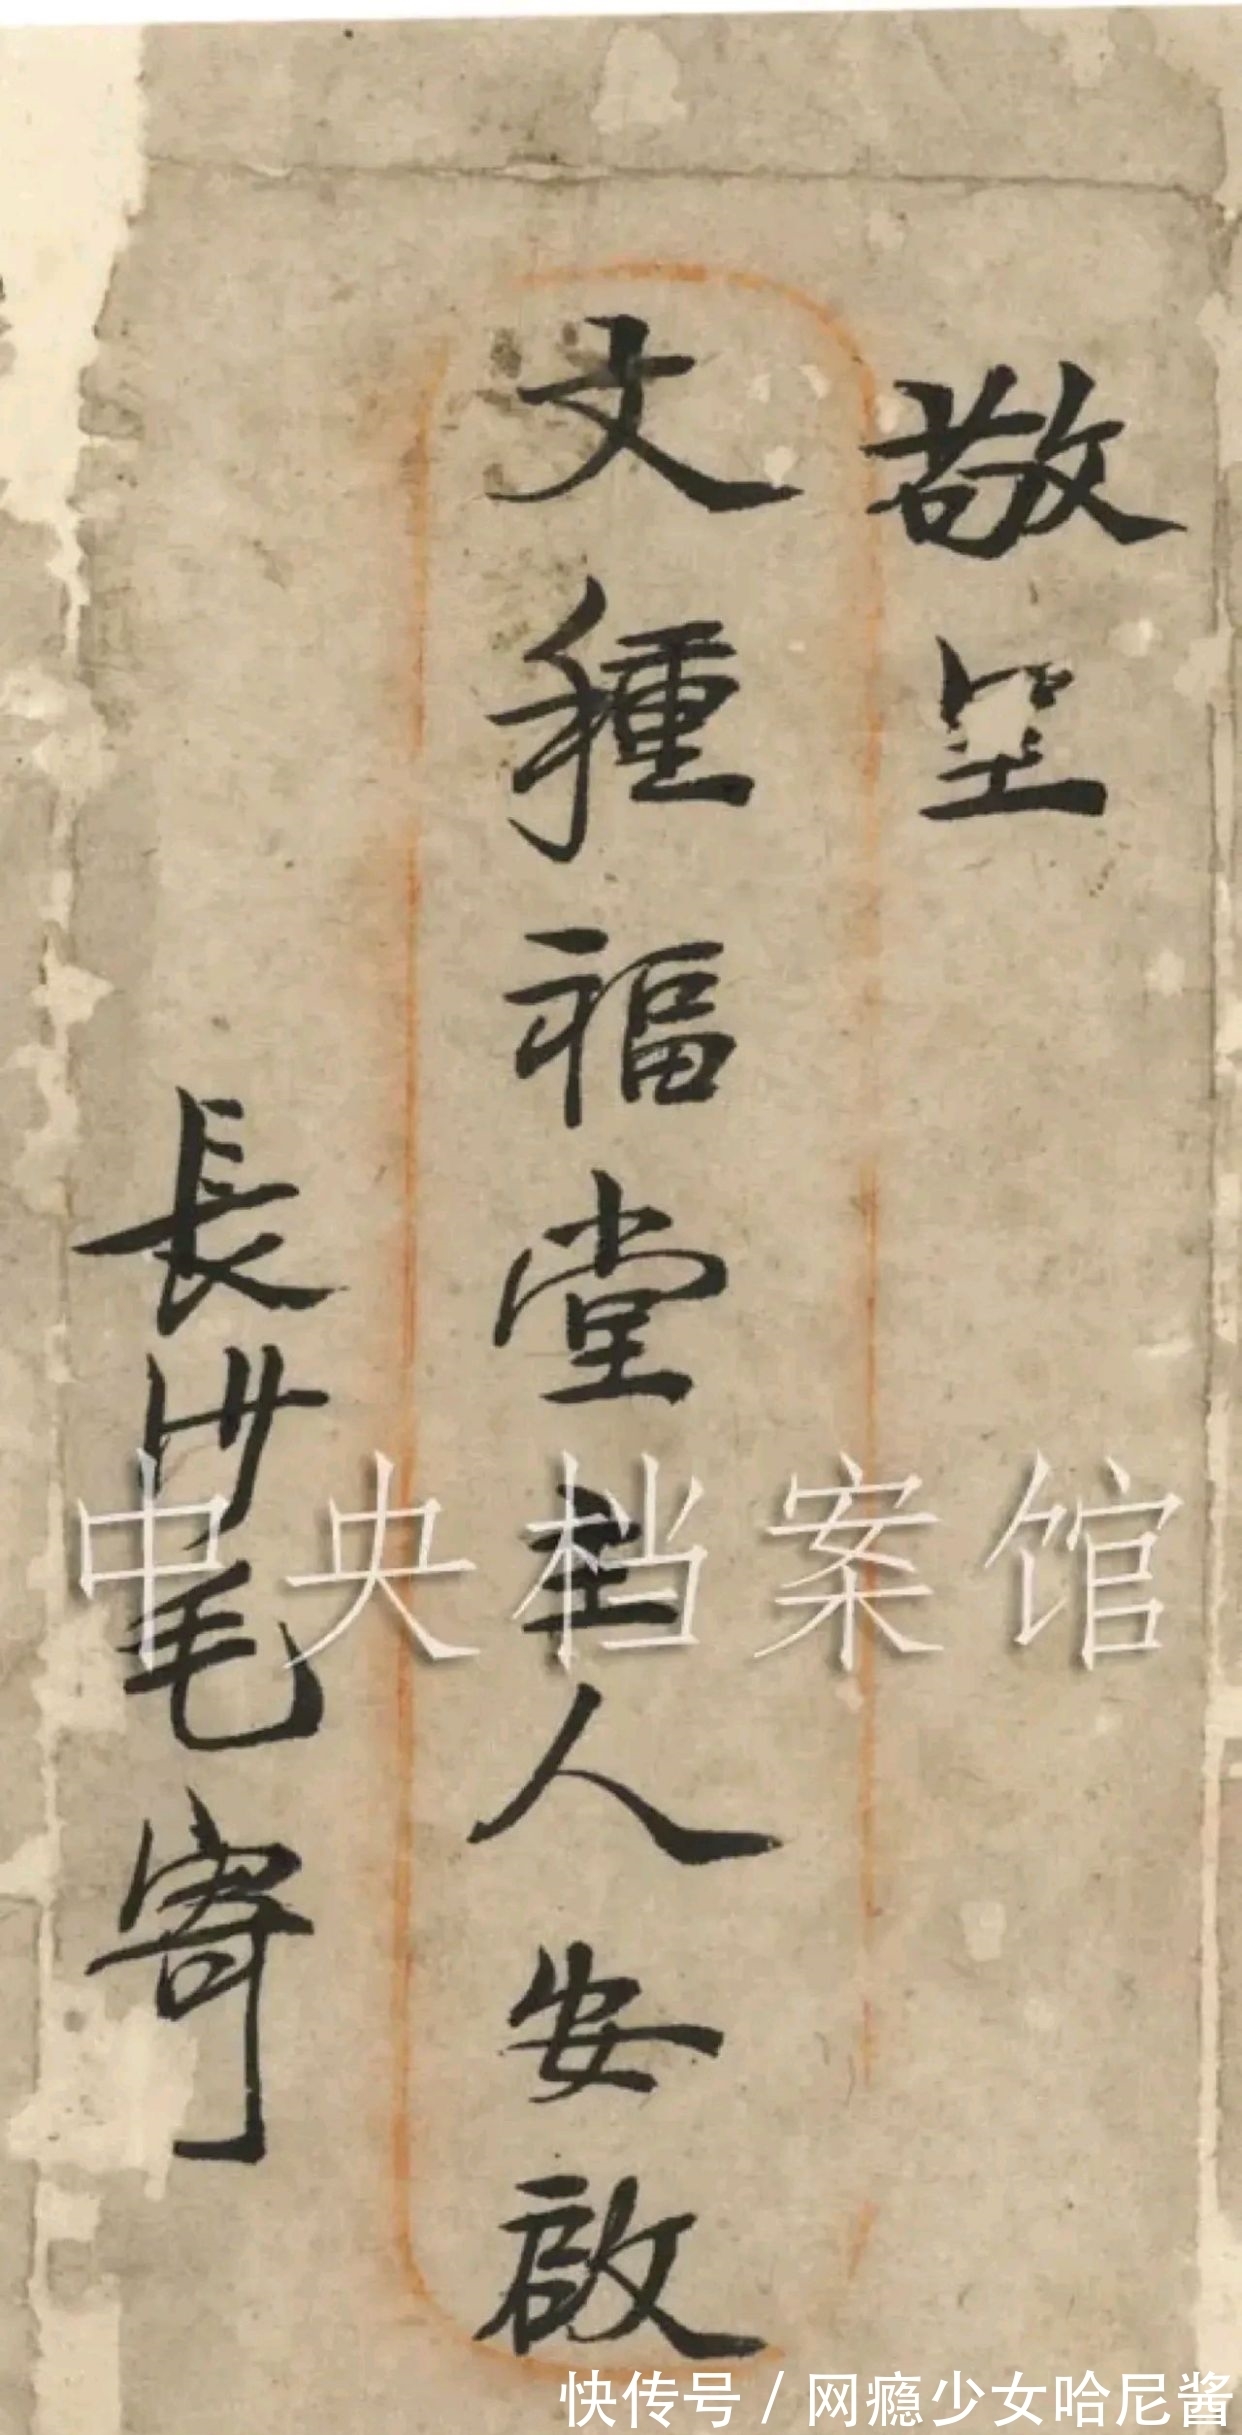 敬呈
文種福堂主人安啟
長沙毛寄
中央档案馆
快传号 / 网瘾少女哈尼酱